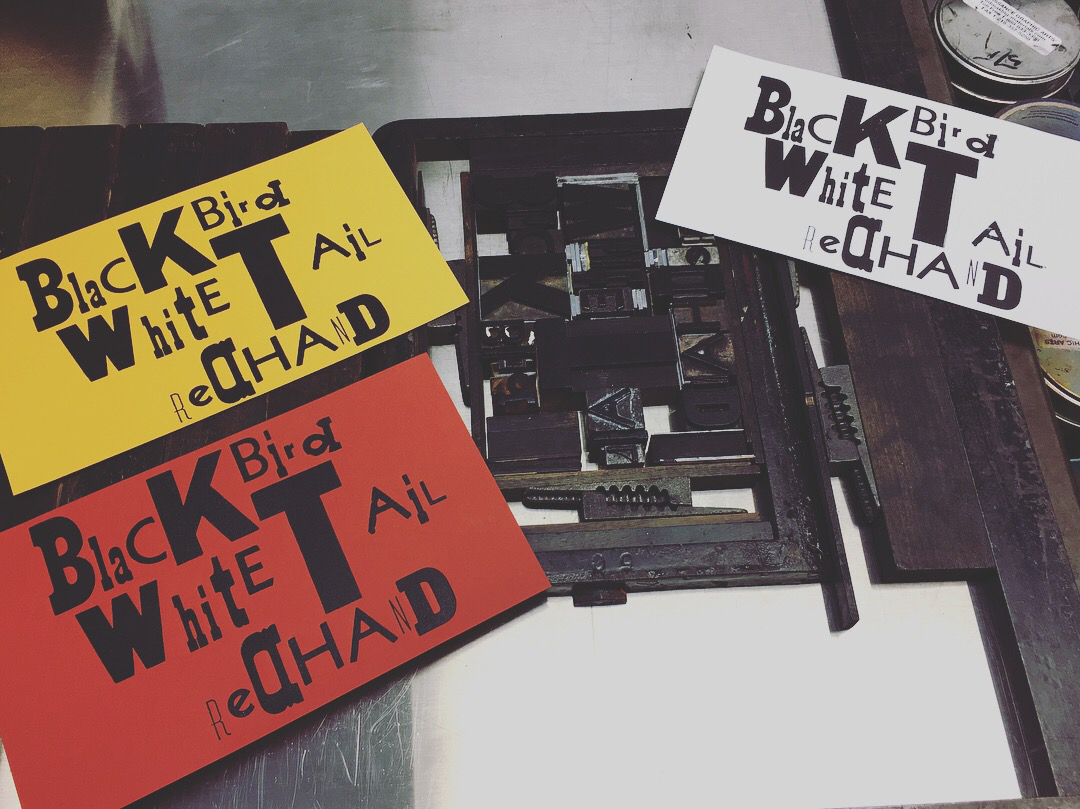 BlaCK Bird
WhitE T AiL
ReaHAND
BlaCK Bird
WhitE T AiL
ReaHAND
BlaCK Bird
WhitE T AiL
ReaHAND
GRAPHIC ARTS